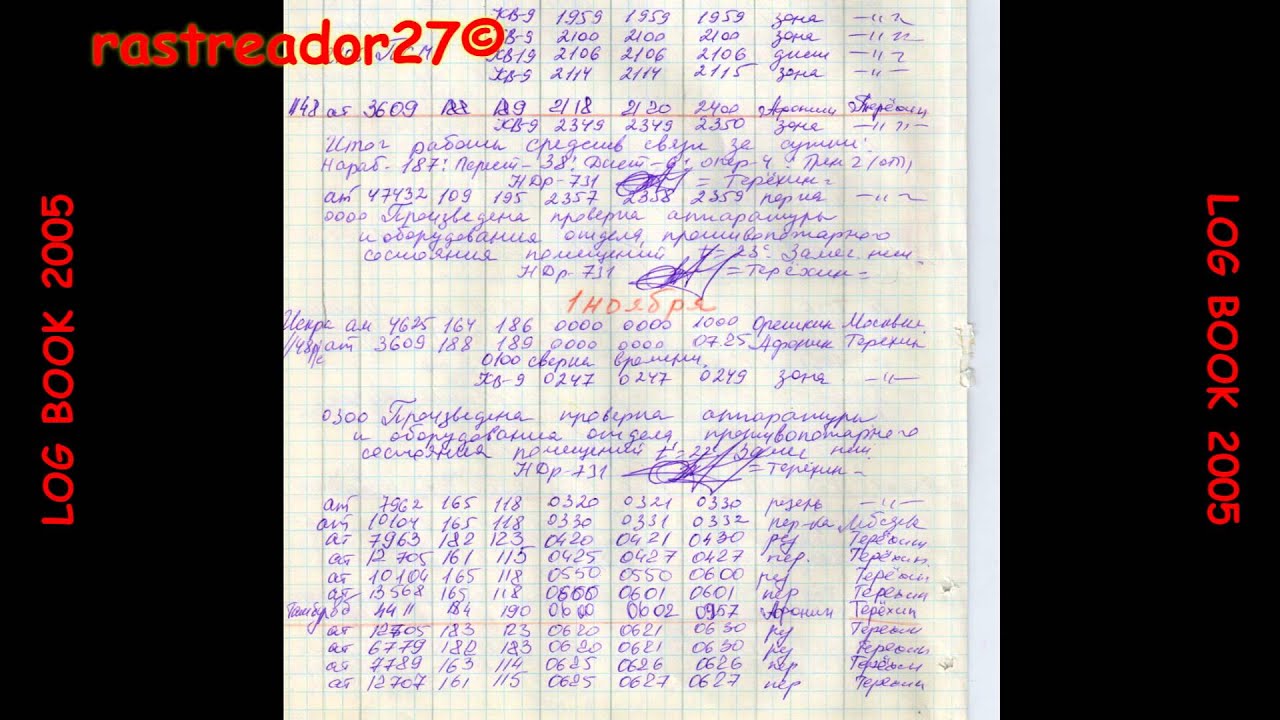 КВ-9 1959 1959 1959 зона —〃—
rastreador27©
КВ-9 2100 2100 2100 зона —〃—
2106 2106 2106 —〃—
КВ-9 2114 2114 2115 зона —〃—
1148 ат 3609 188 189 2118 2120 2400 Афонин Терёхин
КВ-9 2349 2349 2350 зона —〃—
Итог работы средств связи за сутки:
Нараб-187: 38:
НДр-731 =Терёхин=
ат 47432 109 195 2357 2358 2359 —〃—
0000 Произведена проверка аппаратуры
и оборудования отдела, противопожарного
состояния помещений t=23°. Замеч. нет.
НДр-731 =Терёхин=
1 ноября
Искра ам 4625 164 186 0000 0000 1000 Орешкин
ат 3609 188 189 0000 0000 07.25 Афонин Терехин
0100 сверка времени.
КВ-9 0247 0247 0249 зона —〃—
0300 Произведена проверка аппаратуры
и оборудования отдела, противопожарного
состояния помещений t=22° нет.
НДр-731 =Терёхин=
ат 7962 165 118 0320 0321 0330 —〃—
ат 10104 165 118 0330 0331 0332 пер-ка
ат 7963 182 123 0420 0421 0430 рез Терёхин
ат 12705 161 115 0425 0427 0427 пер. Терёхин.
ат 10104 165 118 0550 0550 0600 рез Терёхин
ат 13568 165 118 0600 0601 0601 пер Терехин
Тамбур 4411 184 190 0600 0602 0957 Афонин Терёхин
ат 12705 183 123 0620 0621 0630 рез Терехин
ат 6779 182 183 0620 0621 0630 рез Терехин
ат 7789 163 114 0625 0626 0626 пер Терёхин
ат 12707 161 115 0625 0627 0627 пер Терехин
LOG BOOK 2005
LOG BOOK 2005